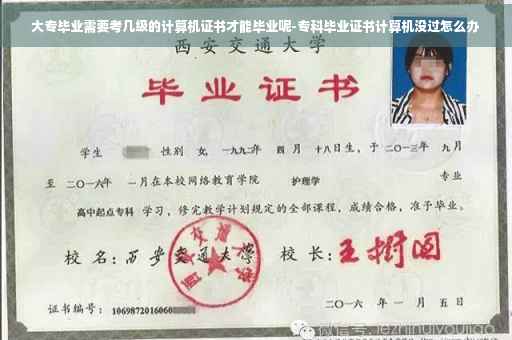 大专毕业需要考几级的计算机证书才能毕业呢-专科毕业证书计算机没过怎么办
西安交通大学
毕业证书
学生 性别 女, 一九九二年 四月 十八日生, 于 二〇一三年 九月
至 二〇一六年 一月在本校网络教育学院 护理学 专业
高中起点专科 学习, 修完教学计划规定的全部课程, 成绩合格, 准予毕业。
校 名: 西安交通大学 校 长: 王树国
西安交通大学
证书编号: 1069872016060 二〇一六 年 一 月 五 日
微信号: jiezhinuiyoujiao